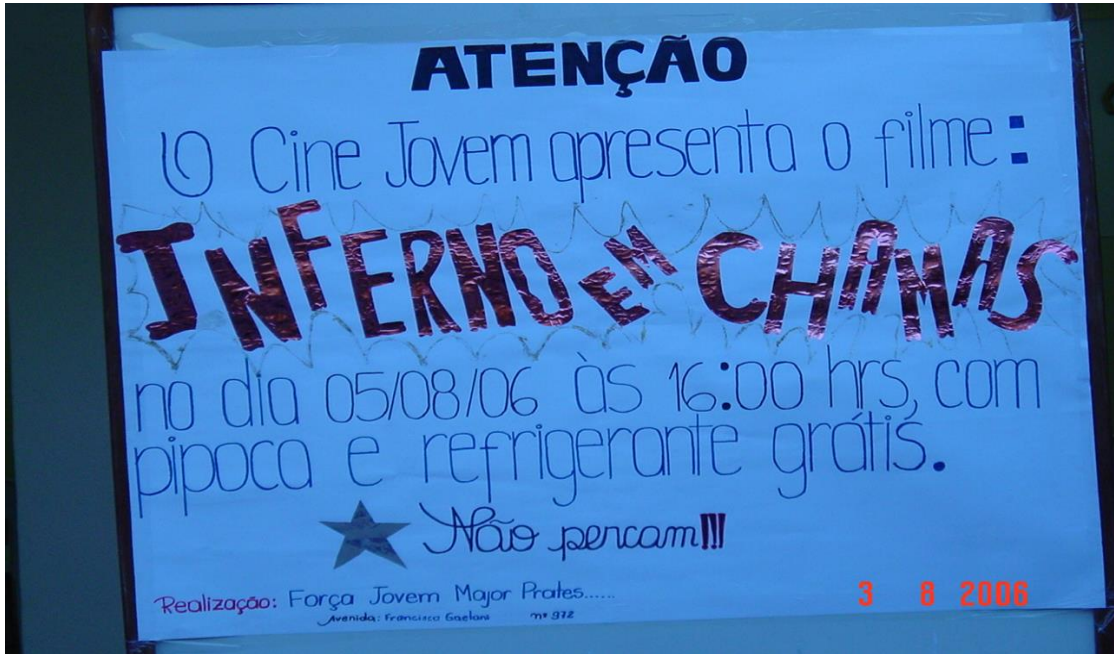 ATENÇÃO
O Cine Jovem apresenta o filme:
INFERNO EM CHAMAS
no dia 05/08/06 às 16:00 hrs, com
pipoca e refrigerante grátis.
Não percam!!!
Realização: Força Jovem Major Prates......
Avenida: Francisco Gaetani nº 972
3 8 2006